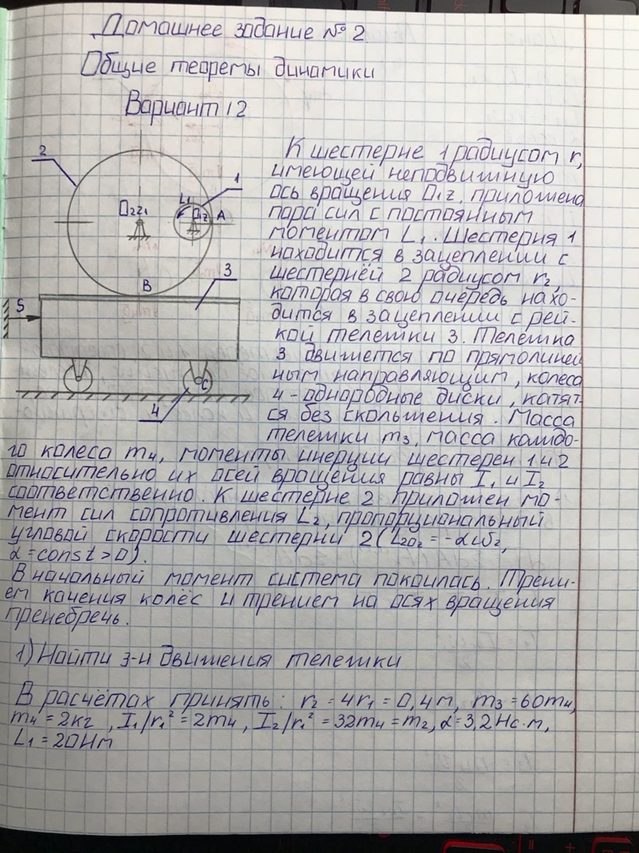 Домашнее задание № 2
Общие теоремы динамики
Вариант 12
К шестерне 1 радиусом r,
имеющей неподвижную
ось вращения O₁z, приложена
пара сил с постоянным
моментом L₁. Шестерня 1
находится в зацеплении с
шестерней 2 радиусом r₂,
которая в свою очередь нахо-
дится в зацеплении с рей-
кой тележки 3. Тележка
3 движется по прямолиней
ным направляющим, колеса
4 - однородные диски, катят-
ся без скольжения. Масса
тележки m₃, масса каждо-
го колеса m₄, моменты инерции шестерен 1 и 2
относительно их осей вращения равны I₁ и I₂
соответственно. К шестерне 2 приложен мо-
мент сил сопротивления L₂, пропорциональный
угловой скорости шестерни 2 (L₂O₂ = -αω₂,
α = const > 0).
В начальный момент система покоилась. Трени-
ем качения колёс и трением на осях вращения
пренебречь.
1) Найти з-н движения тележки
В расчётах принять: r₂ = 4r₁ = 0,4 м, m₃ = 60m₄,
m₄ = 2кг, I₁/r₁² = 2m₄, I₂/r₁² = 32m₄ = m₂, α = 3,2 Нс·м,
L₁ = 20Нм
2
1
L₁
O₂z₁
O₁z
A
B
3
S
C
4